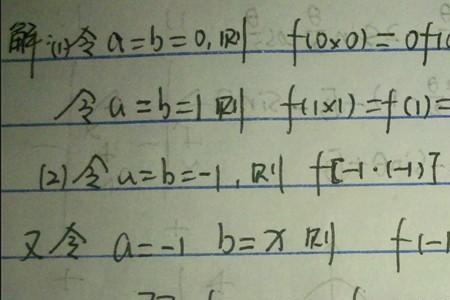 解:(1)令 a=b=0,则 f(0×0)=0f(0
令 a=b=1则 f(1×1)=f(1)=
(2)令 a=b=-1,则 f[-1·(-1)]
又令 a=-1 b=x 则 f(-1